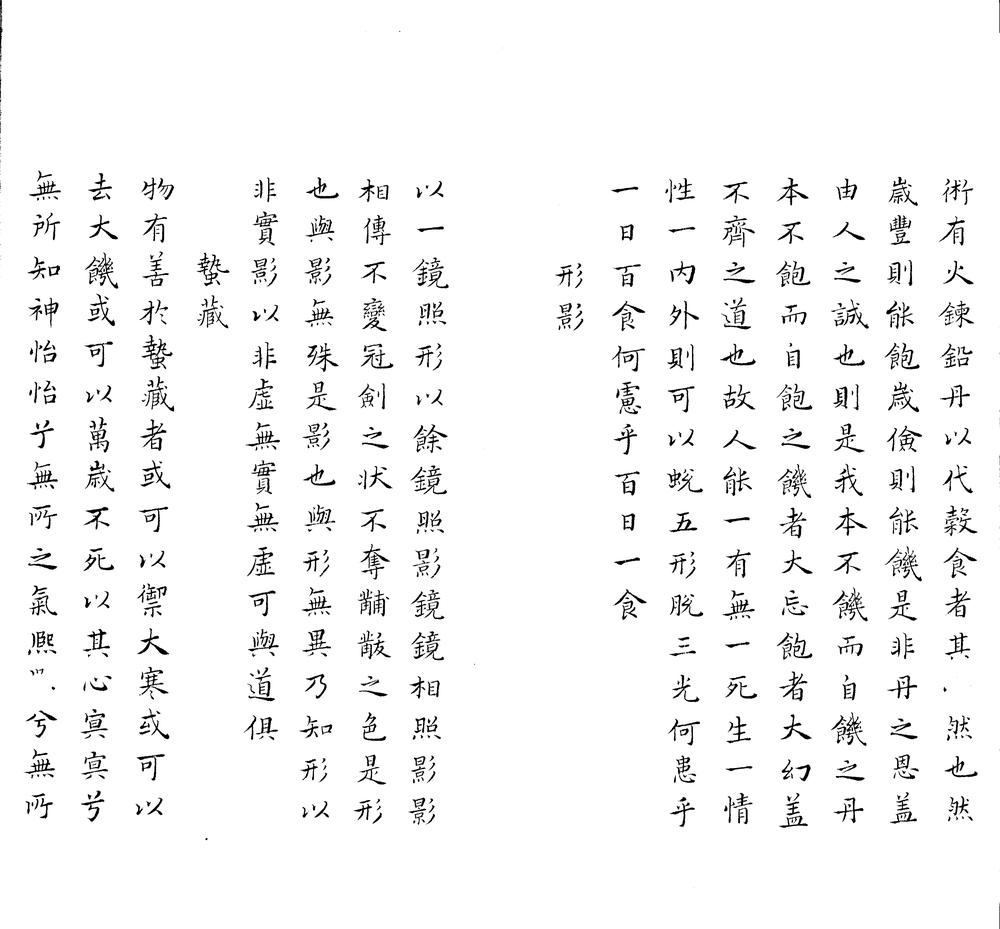 術有火鍊鉛丹以代穀食者其然也然
歲豐則能飽歲儉則能饑是非丹之恩蓋
由人之誠也則是我本不饑而自饑之丹
本不飽而自飽之饑者大忘飽者大幻蓋
不齊之道也故人能一有無一死生一情
性一内外則可以蛻五形脫三光何患乎
一日百食何慮乎百日一食
形影
以一鏡照形以餘鏡照影鏡鏡相照影影
相傳不變冠劍之狀不奪黼黻之色是形
也與影無殊是影也與形無異乃知形以
非實影以非虛無實無虛可與道俱
蟄藏
物有善於蟄藏者或可以禦大寒或可以
去大饑或可以萬歲不死以其心冥冥兮
無所知神怡怡兮無所之氣熙兮無所